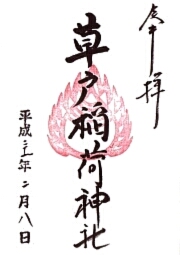 奉拝
草戸稲荷神社
平成 年二月八日